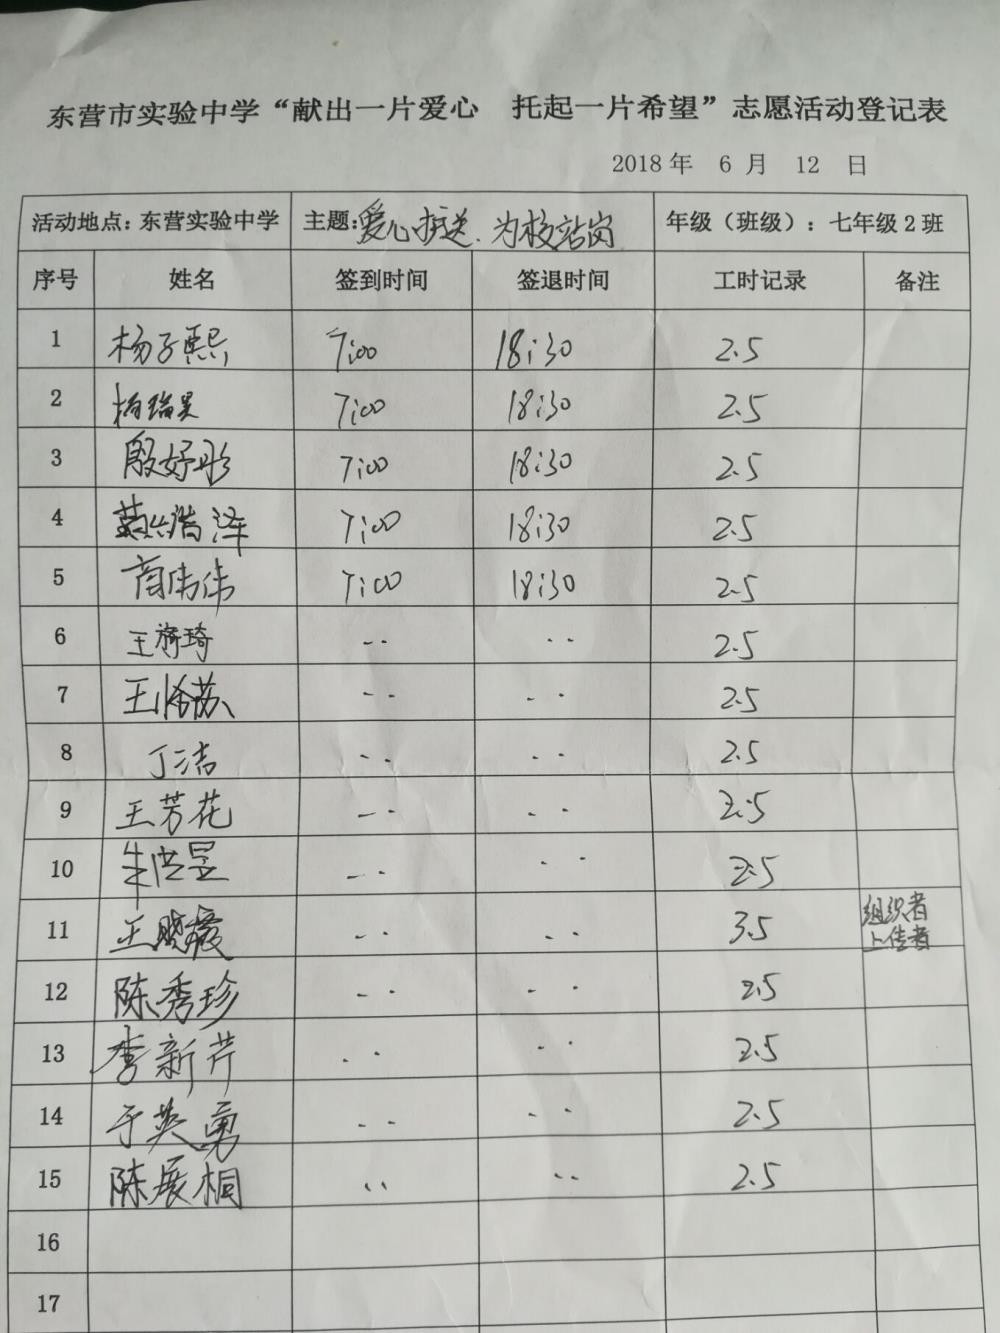 东营市实验中学“献出一片爱心 托起一片希望”志愿活动登记表
2018 年 6 月 12 日
活动地点：东营实验中学 主题：爱心护送、为校站岗 年级（班级）：七年级2班
序号 姓名 签到时间 签退时间 工时记录 备注
1 杨子熙 7:00 18:30 2.5
2 杨瑞昊 7:00 18:30 2.5
3 殷妤彤 7:00 18:30 2.5
4 浩泽 7:00 18:30 2.5
5 商伟伟 7:00 18:30 2.5
6 王 琦 ·· ·· 2.5
7 王 苏 ·· ·· 2.5
8 丁洁 ·· ·· 2.5
9 王芳花 ·· ·· 2.5
10 朱浩昱 ·· ·· 2.5
11 王晓媛 ·· ·· 3.5 组织者
上传者
12 陈秀珍 ·· ·· 2.5
13 李新芹 ·· ·· 2.5
14 于英勇 ·· ·· 2.5
15 陈展桐 ·· ·· 2.5
16
17